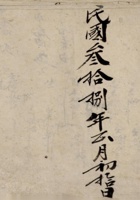 民國叁拾捌年正月初拾日